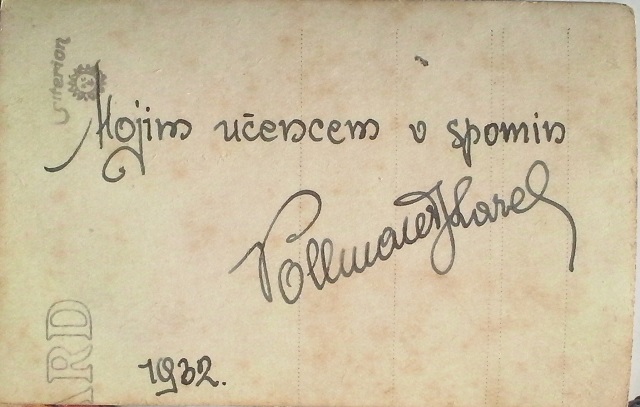 Mojim učencem v spomin
Vollmaier Karel
1932.
Criterion
ARD